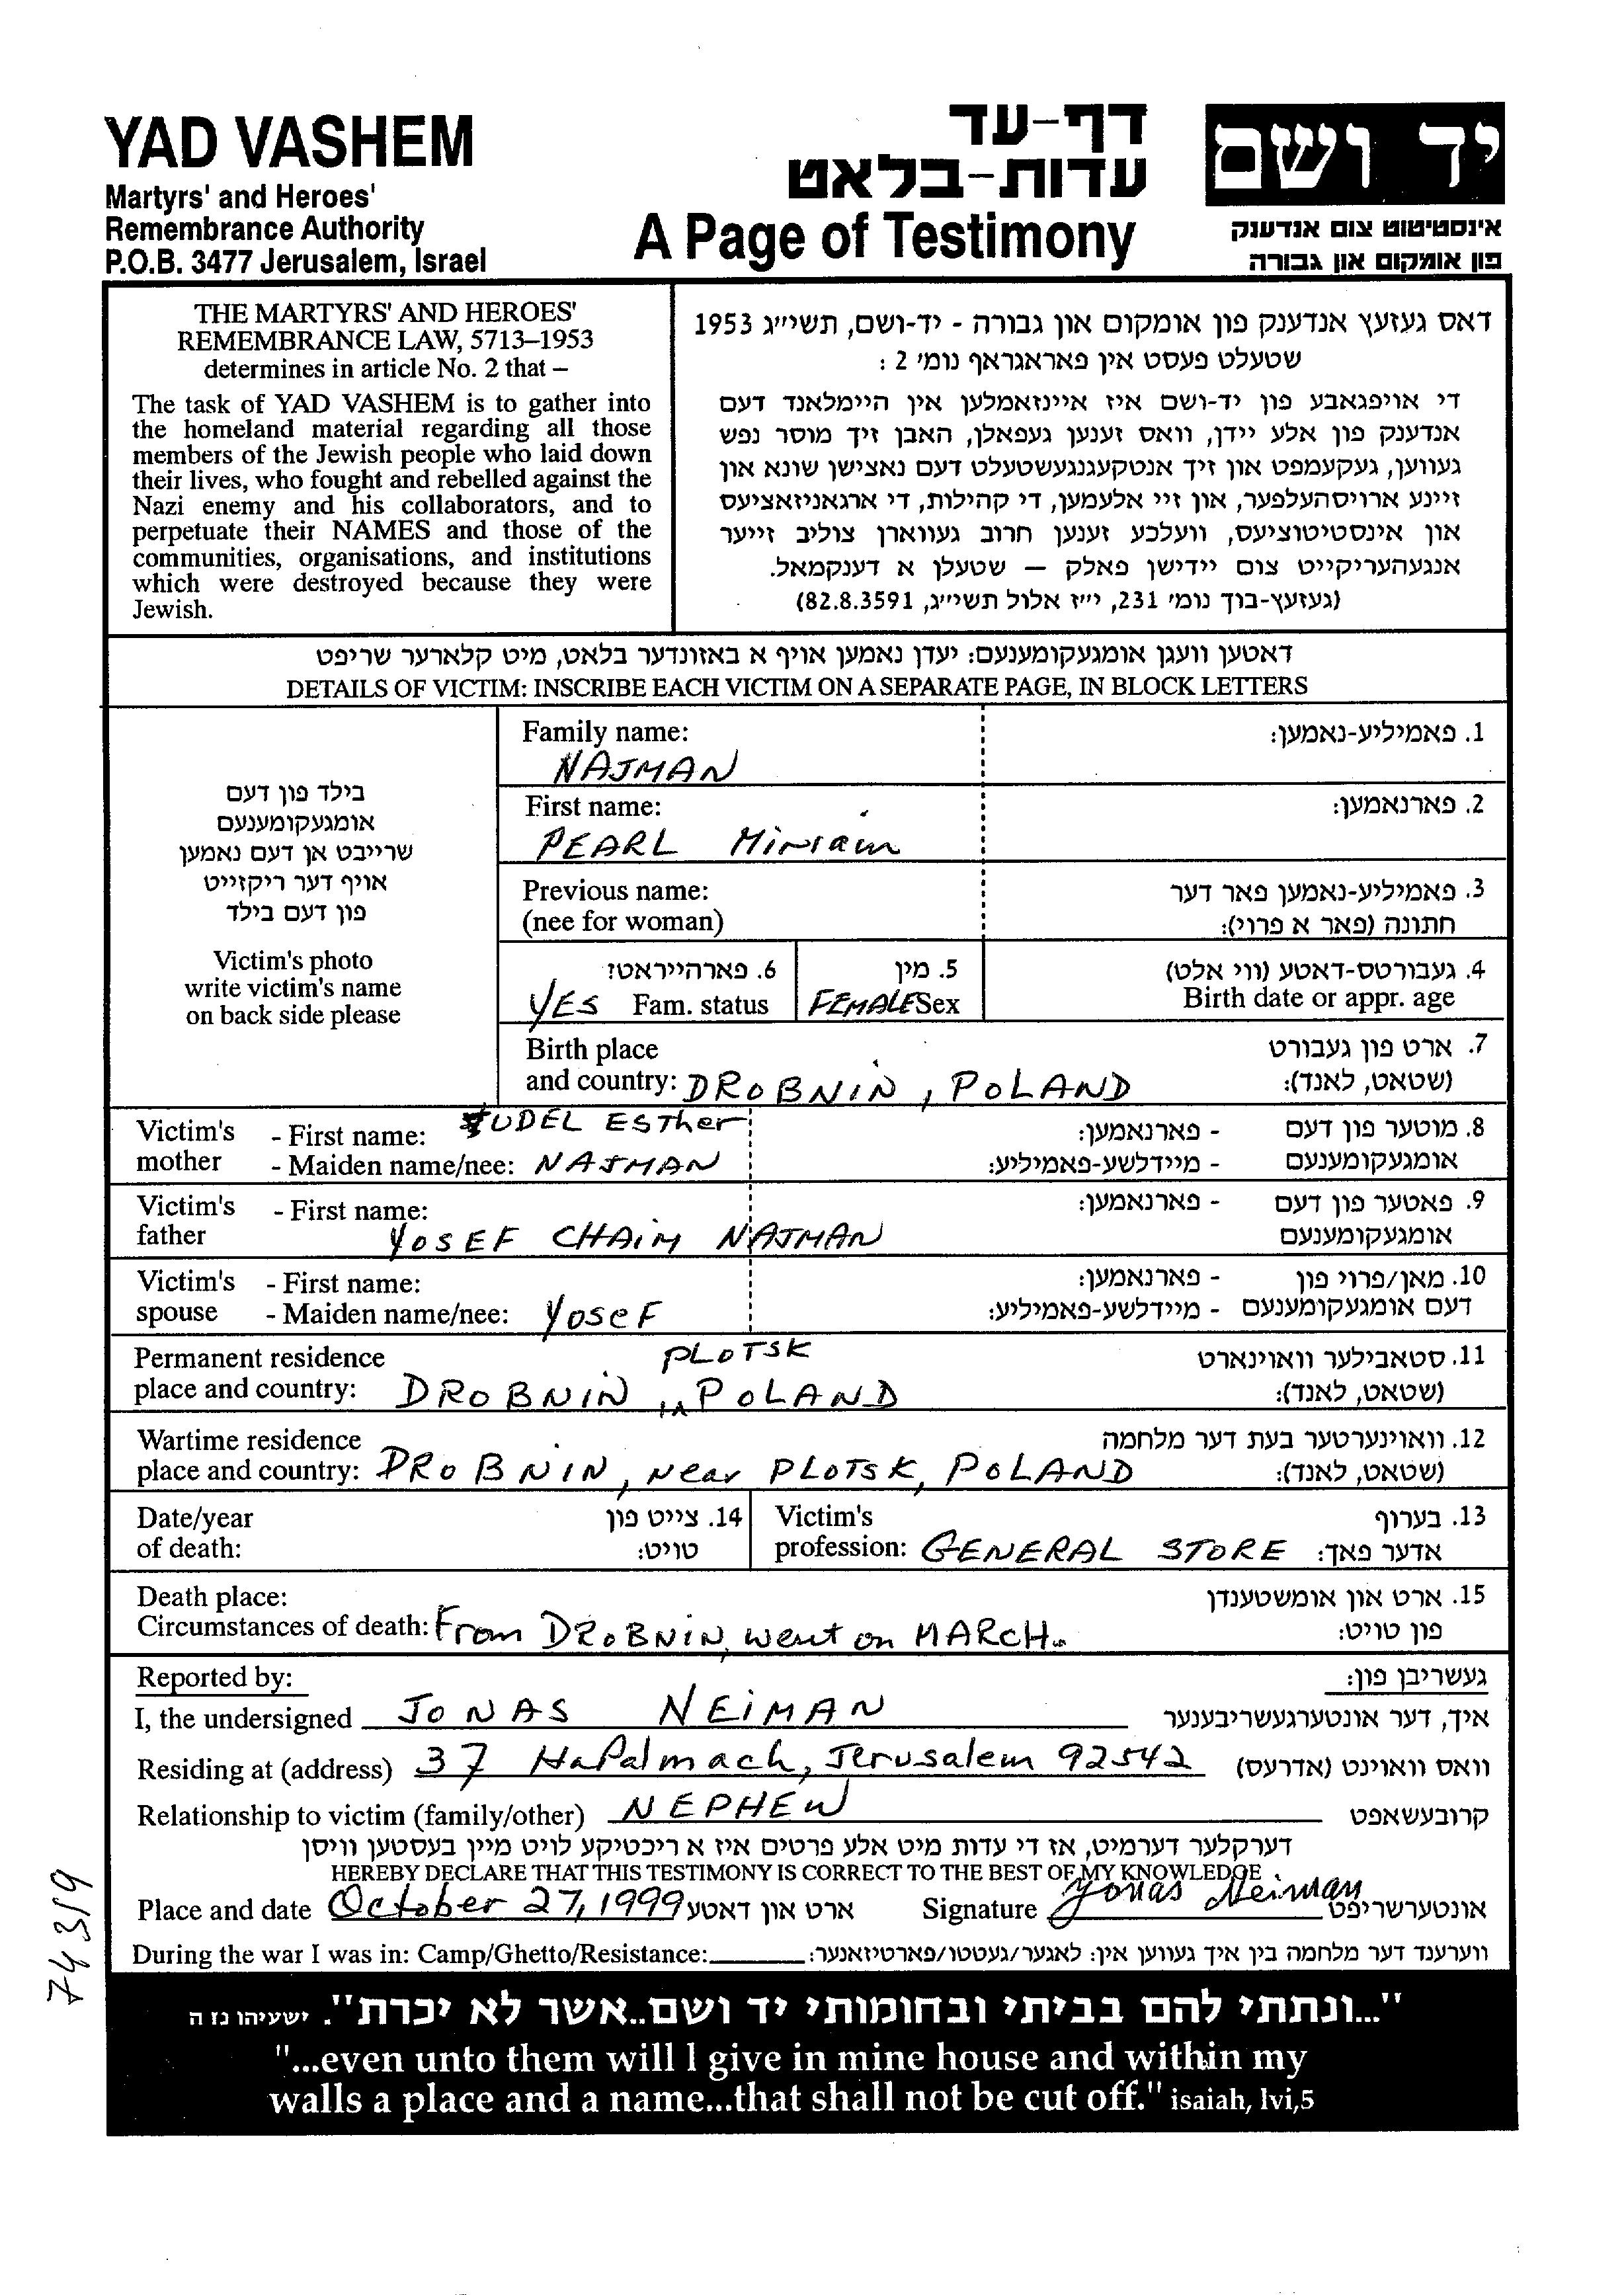 YAD VASHEM
Martyrs' and Heroes'
Remembrance Authority
P.O.B. 3477 Jerusalem, Israel
דף-עד
עדות-בלאט
A Page of Testimony
יד ושם
אינסטיטוט צום אנדענק
פון אומקום און גבורה
THE MARTYRS' AND HEROES'
REMEMBRANCE LAW, 5713–1953
determines in article No. 2 that –
The task of YAD VASHEM is to gather into
the homeland material regarding all those
members of the Jewish people who laid down
their lives, who fought and rebelled against the
Nazi enemy and his collaborators, and to
perpetuate their NAMES and those of the
communities, organisations, and institutions
which were destroyed because they were
Jewish.
דאס געזעץ אנדענק פון אומקום און גבורה - יד-ושם, תשי״ג 1953
שטעלט פעסט אין פאראגראף נומ׳ 2 :
די אויפגאבע פון יד-ושם איז איינזאמלען אין היימלאנד דעם
אנדענק פון אלע יידן, וואס זענען געפאלן, האבן זיך מוסר נפש
געווען, געקעמפט און זיך אנטקעגנגעשטעלט דעם נאצישן שונא און
זיינע ארויסהעלפער, און זיי אלעמען, די קהילות, די ארגאניזאציעס
און אינסטיטוציעס, וועלכע זענען חרוב געווארן צוליב זייער
אנגעהעריקייט צום יידישן פאלק — שטעלן א דענקמאל.
(געזעץ-בוך נומ׳ 231, י״ז אלול תשי״ג, 82.8.3591)
דאטען וועגן אומגעקומענעם: יעדן נאמען אויף א באזונדער בלאט, מיט קלארער שריפט
DETAILS OF VICTIM: INSCRIBE EACH VICTIM ON A SEPARATE PAGE, IN BLOCK LETTERS
בילד פון דעם
אומגעקומענעם
שרייבט אן דעם נאמען
אויף דער ריקזייט
פון דעם בילד
Victim's photo
write victim's name
on back side please
Family name: 1. פאמיליע-נאמען:
NAJMAN
First name: 2. פארנאמען:
PEARL Miriam
Previous name: 3. פאמיליע-נאמען פאר דער
(nee for woman) חתונה (פאר א פרוי):
6. פארהייראטט? 5. מין 4. געבורטס-דאטע (ווי אלט)
YES Fam. status FEMALE Sex Birth date or appr. age
Birth place 7. ארט פון געבורט
and country: DROBNIN, POLAND (שטאט, לאנד):
Victim's - First name: YUDEL ESTher - פארנאמען: 8. מוטער פון דעם
mother - Maiden name/nee: NAJMAN - מיידלשע-פאמיליע: אומגעקומענעם
Victim's - First name: - פארנאמען: 9. פאטער פון דעם
father YOSEF CHAIM NAJMAN אומגעקומענעם
Victim's - First name: - פארנאמען: 10. מאן/פרוי פון
spouse - Maiden name/nee: YoseF - מיידלשע-פאמיליע: דעם אומגעקומענעם
Permanent residence PLOTSK 11. סטאבילער וואוינארט
place and country: DROBNIN, POLAND (שטאט, לאנד):
Wartime residence 12. וואוינערטער בעת דער מלחמה
place and country: DROBNIN, near PLOTSK, POLAND (שטאט, לאנד):
Date/year 14. צייט פון Victim's 13. בערוף
of death: טויט: profession: GENERAL STORE אדער פאך:
Death place: 15. ארט און אומשטענדן
Circumstances of death: From DROBNIN, went on MARCH.. פון טויט:
Reported by: געשריבן פון:
I, the undersigned JONAS NEIMAN איך, דער אונטערגעשריבענער
Residing at (address) 37 HaPalmach, Jerusalem 92542 וואס וואוינט (אדרעס)
Relationship to victim (family/other) NEPHEW קרובעשאפט
דערקלער דערמיט, אז די עדות מיט אלע פרטים איז א ריכטיקע לויט מיין בעסטען וויסן
HEREBY DECLARE THAT THIS TESTIMONY IS CORRECT TO THE BEST OF MY KNOWLEDGE
Place and date October 27, 1999 ארט און דאטע Signature Jonas Neiman אונטערשריפט
During the war I was in: Camp/Ghetto/Resistance: ווערענד דער מלחמה בין איך געווען אין: לאגער/געטטו/פארטיזאנער:
"...ונתתי להם בביתי ובחומותי יד ושם..אשר לא יכרת". ישעיהו נז ה
"...even unto them will I give in mine house and within my
walls a place and a name...that shall not be cut off." isaiah, lvi,5
74319